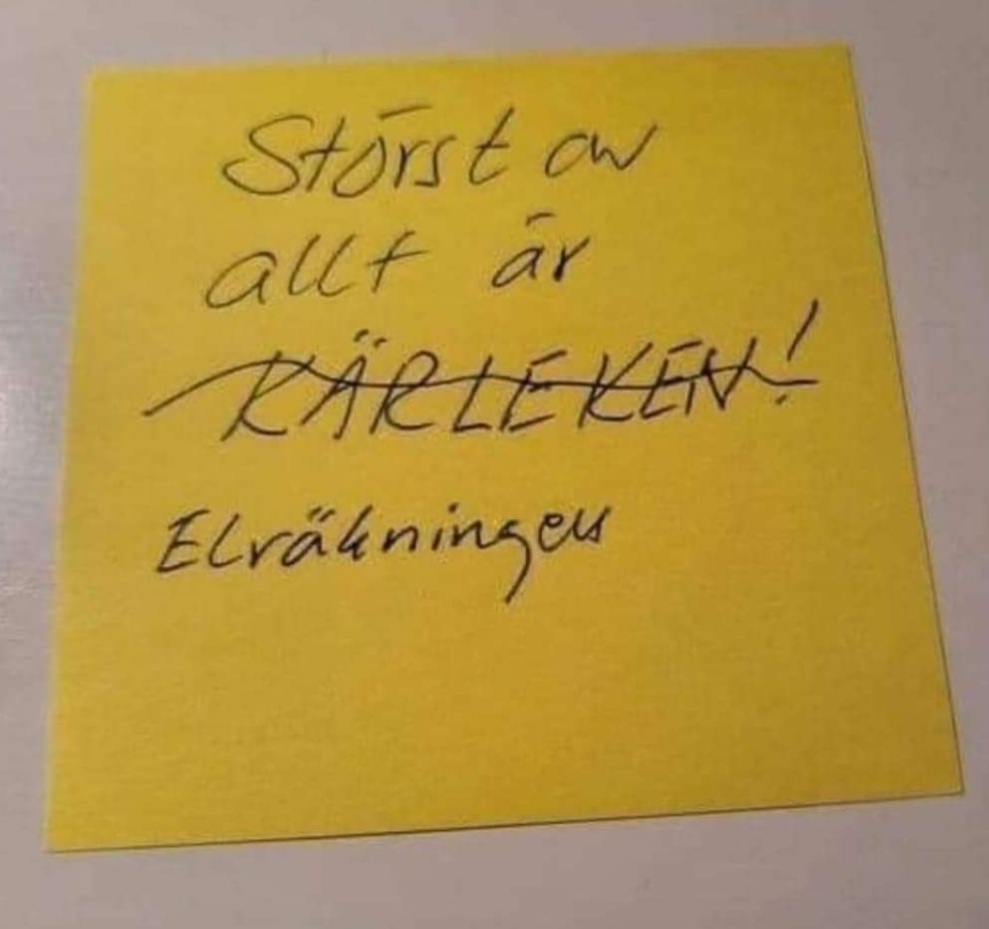 Störst av
allt är
KÄRLEKEN!
Elräkningen